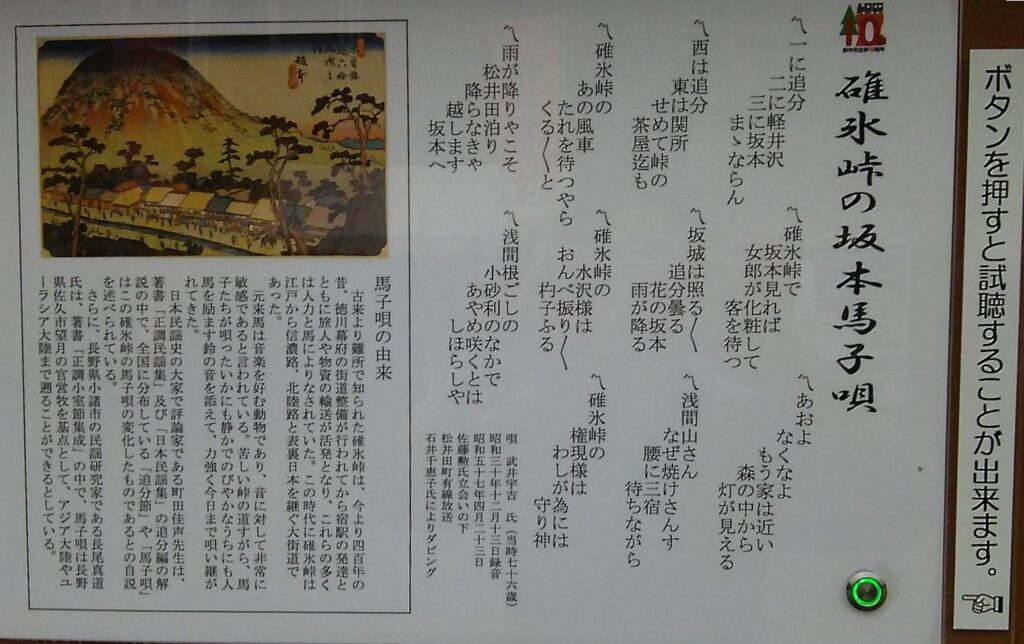 ボタンを押すと試聴することが出来ます。
碓氷峠の坂本馬子唄
〽一に追分
二に軽井沢
三に坂本
まゝならん
〽碓氷峠で
坂本見れば
女郎が化粧して
客を待つ
〽あおよ
なくなよ
もう家は近い
森の中から
灯が見える
〽西は追分
東は関所
せめて峠の
茶屋迄も
〽坂城は照る〳〵
追分曇る
花の坂本
雨が降る
〽浅間山さん
なぜ焼けさんす
腰に三宿
待ちながら
〽碓氷峠の
あの風車
たれを待つやら
くる〳〵と
〽碓氷峠の
水沢様は
おんべ振り〳〵
杓子ふる
〽碓氷峠の
権現様は
わしが為には
守り神
〽雨が降りゃこそ
松井田泊り
降らなきゃ
越します
坂本へ
〽浅間根ごしの
小砂利のなかで
あやめ咲くとは
しほらしや
唄 武井宇吉 氏(当時七十六歳)
昭和三十年十二月十三日録音
昭和五十七年四月二十三日
佐藤勲氏立会いの下
松井田町有線放送
石井千恵子氏によりダビング
馬子唄の由来
古来より難所で知られた碓氷峠は、今より四百年の
昔、徳川幕府の街道整備が行われてから宿駅の発達と
ともに旅人や物資の輸送が活発となり、これらの多く
は人力と馬によりなされていた。この時代に碓氷峠は
江戸から信濃路、北陸路と表裏日本を継ぐ大街道で
あった。
元来馬は音楽を好む動物であり、音に対して非常に
敏感であると言われている。苦しい峠の道すがら、馬
子たちが唄ったいかにも静かでのびやかなうちにも人
馬を励ます鈴の音を添えて、力強く今日まで唄い継が
れてきた。
日本民謡史の大家で評論家である町田佳声先生は、
著書「正調民謡集」及び「日本民謡集」の追分編の解
説の中で、全国に分布している「追分節」や「馬子唄」
はこの碓氷峠の馬子唄の変化したものであるとの自説
を述べられている。
さらに、長野県小諸市の民謡研究家である長尾真道
氏は、著書「正調小室節集成」の中で、馬子唄は長野
県佐久市望月の官営牧を基点として、アジア大陸やユ
ーラシア大陸まで遡ることができるとしている。